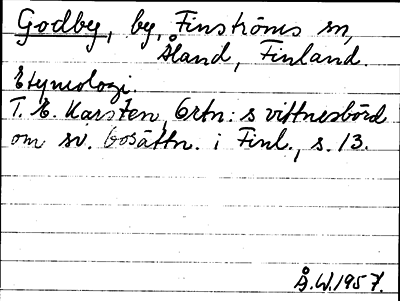 Godby, by, Finströms sn,
Åland, Finland.
Etymologi.
T. E. Karsten, Ortn:s vittnesbörd
om sv. bosättn. i Finl., s. 13.
Å.W.1957.